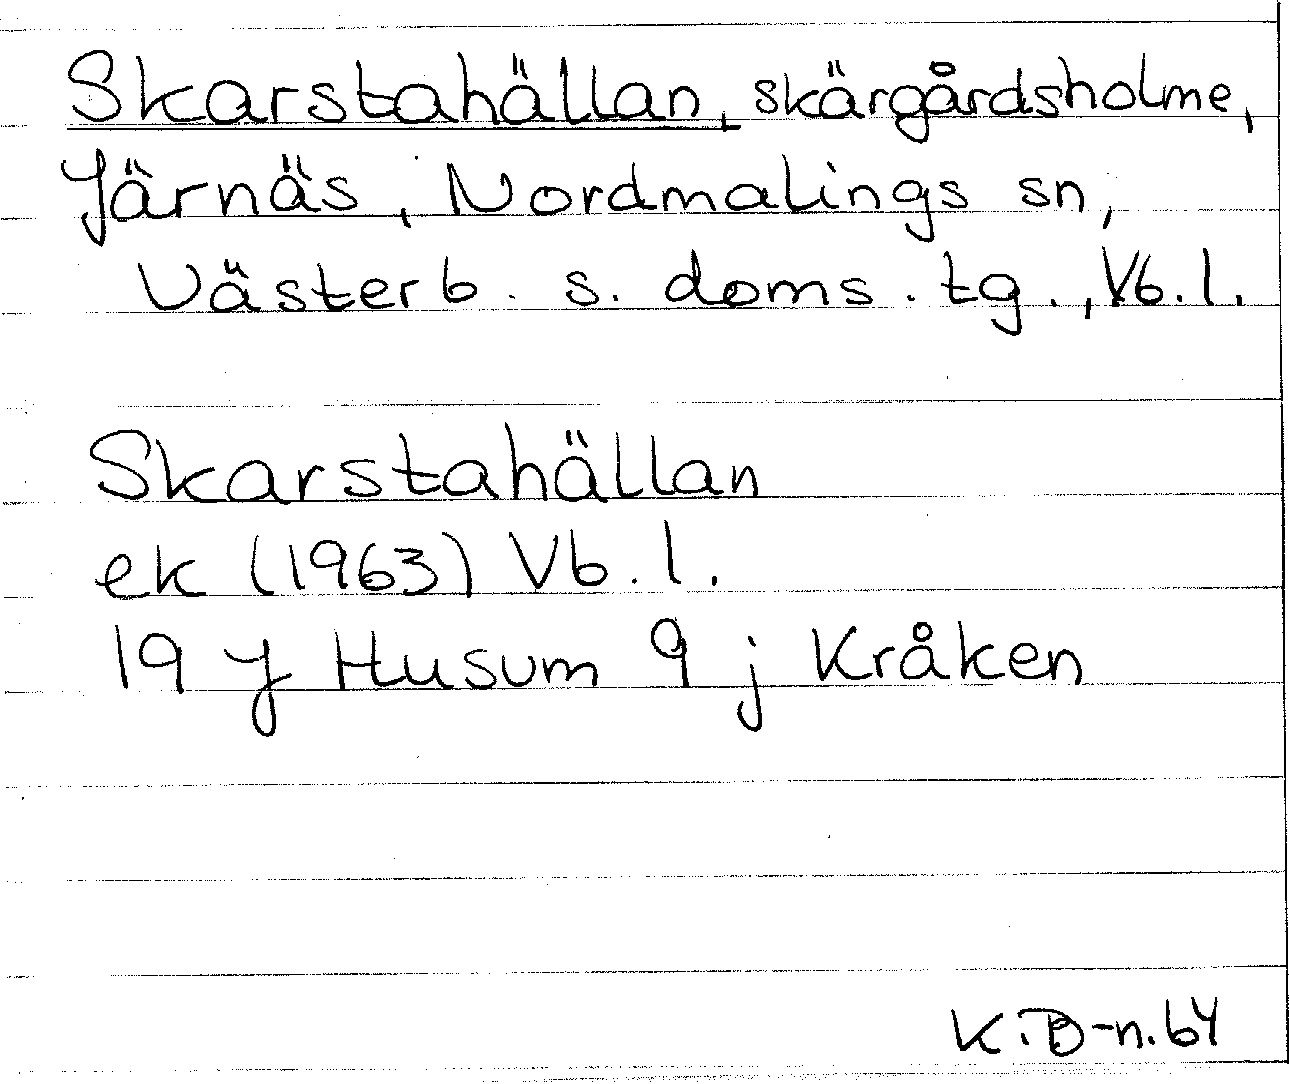 Skarstahällan, skärgårdsholme,
Järnäs, Nordmalings sn,
Västerb. s. doms. tg., Vb. l.
Skarstahällan
ek (1963) Vb. l.
19 J Husum 9 j Kråken
K.B-n.64